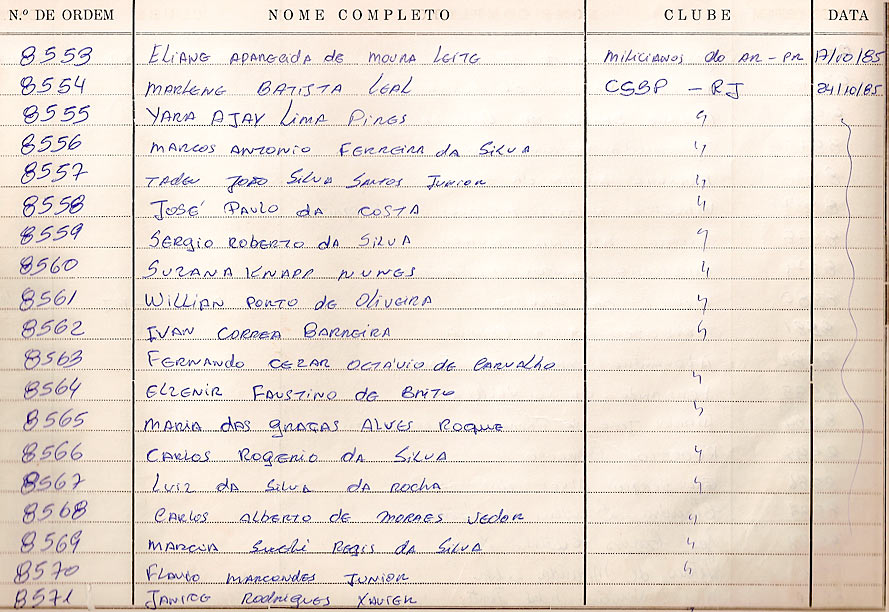 N.º DE ORDEM NOME COMPLETO CLUBE DATA
8553 Eliane Aparecida de Moura Leite Milicianos do AR-PR 17/10/85
8554 Marlene Batista Leal CSBP - RJ 24/10/85
8555 Yara Ajay Lima Pires "
8556 Marcos Antonio Ferreira da Silva "
8557 Tadeu João Silva Santos Junior "
8558 José Paulo da Costa "
8559 Sergio Roberto da Silva "
8560 Suzana Knapp Nunes "
8561 Willian Porto de Oliveira "
8562 Ivan Correa Barreira "
8563 Fernando Cezar Octávio de Carvalho "
8564 Elzenir Faustino de Brito "
8565 Maria das Graças Alves Roque
8566 Carlos Rogerio da Silva "
8567 Luiz da Silva da Rocha "
8568 Carlos Alberto de Moraes Vedor "
8569 Marcia Regis da Silva "
8570 Flavio Marcondes Junior "
8571 Janice Rodrigues Xavier "